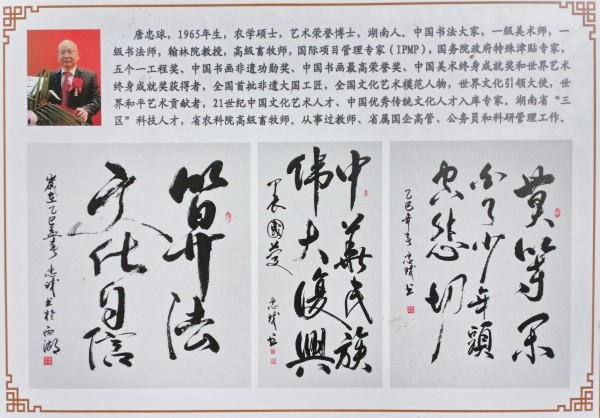 唐忠球，1965年生，农学硕士，艺术荣誉博士，湖南人。中国书法大家，一级美术师，一
级书法师，翰林院教授，高级畜牧师，国际项目管理专家（IPMP），国务院政府特殊津贴专家，
五个一工程奖、中国书画非遗功勋奖、中国书画最高荣誉奖、中国美术终身成就奖和世界艺术
终身成就奖获得者，全国首批非遗大国工匠，全国文化艺术模范人物，世界文化引领大使，世
界和平艺术贡献者，21世纪中国文化艺术人才、中国优秀传统文化人才入库专家。湖南省“三
区”科技人才，省农科院高级畜牧师。从事过教师、省属国企高管、公务员和科研管理工作。
算法
文化自信
岁在乙巳孟春 忠球书于西湖
中华民族
伟大复兴
中国梦
忠球书
莫等闲
白了少年头
空悲切
乙巳年春 忠球书